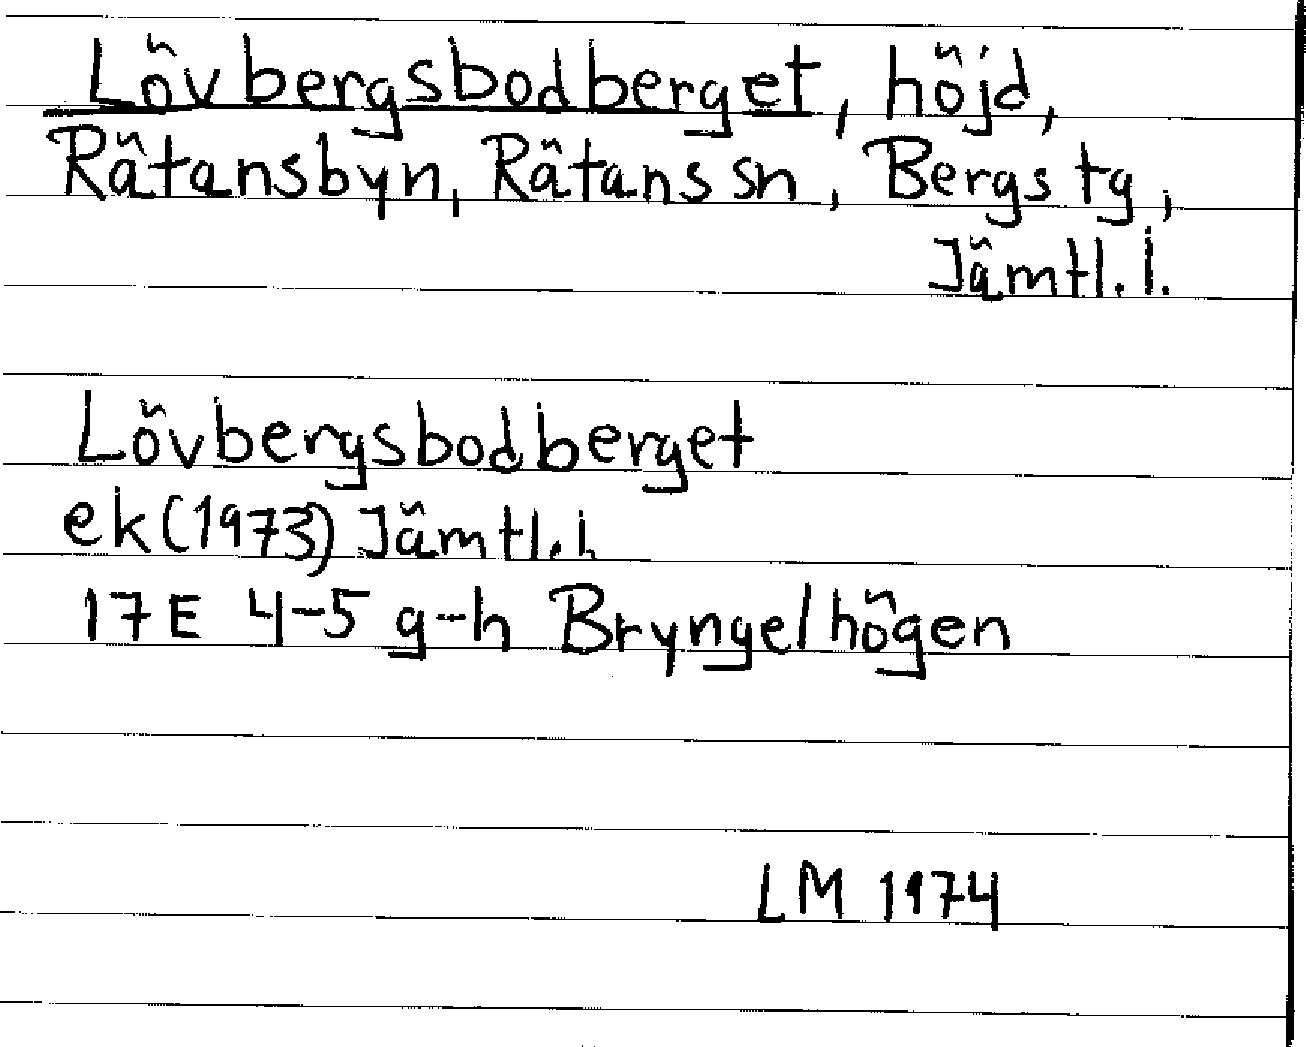 Lövbergsbodberget, höjd,
Rätansbyn, Rätans sn, Bergs tg,
Jämtl. l.
Lövbergsbodberget
ek (1973) Jämtl. l.
17E 4-5 g-h Bryngelhögen
LM 1974